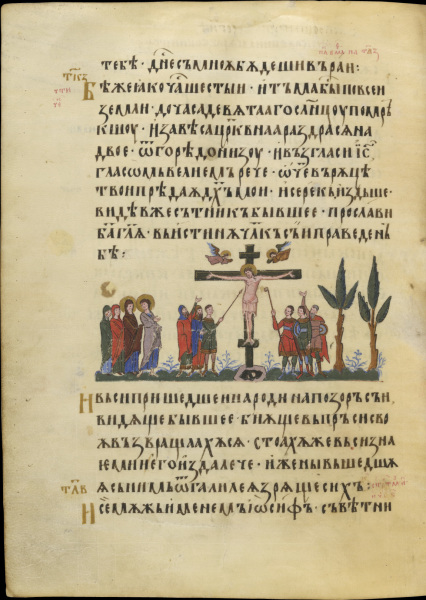 тебѣ · дн҃есъ мноѫ бѫдеши въ раи :
Бѣже ꙗко ча҃ шестыи · и тъма бы по всеи
земли · до часа девѧтааго сл҃нцоу помрь
кшоу · и завѣса цр҃квнаа раздрасѧ на
двое · ѿ горѣ до низоу · и възгласи іс҃
гласомъ велиемъ рече · ѡч҃е въ рѫцѣ
твои прѣдаѫ дх҃ъ мои · и се рекъ издьше ·
видѣвже сътникъ бывшее · прослави
ба҃ гл҃ѧ · въистинѫ чл҃къ съи праведенъ
бѣ :
И въси пришедшеи народи на позоръ съи
видѧще бывшее · биѫще въ пръси сво
ѧ възвращаахѫсѧ · стоахѫ же въси зна
емии его издалече · и жены вышедшѧ
ѧ съ нимъ ѿ галилеѧ зрѧще сихъ :
тл҃в
И се мѫжь именемъ іѡсифъ · съвѣтни